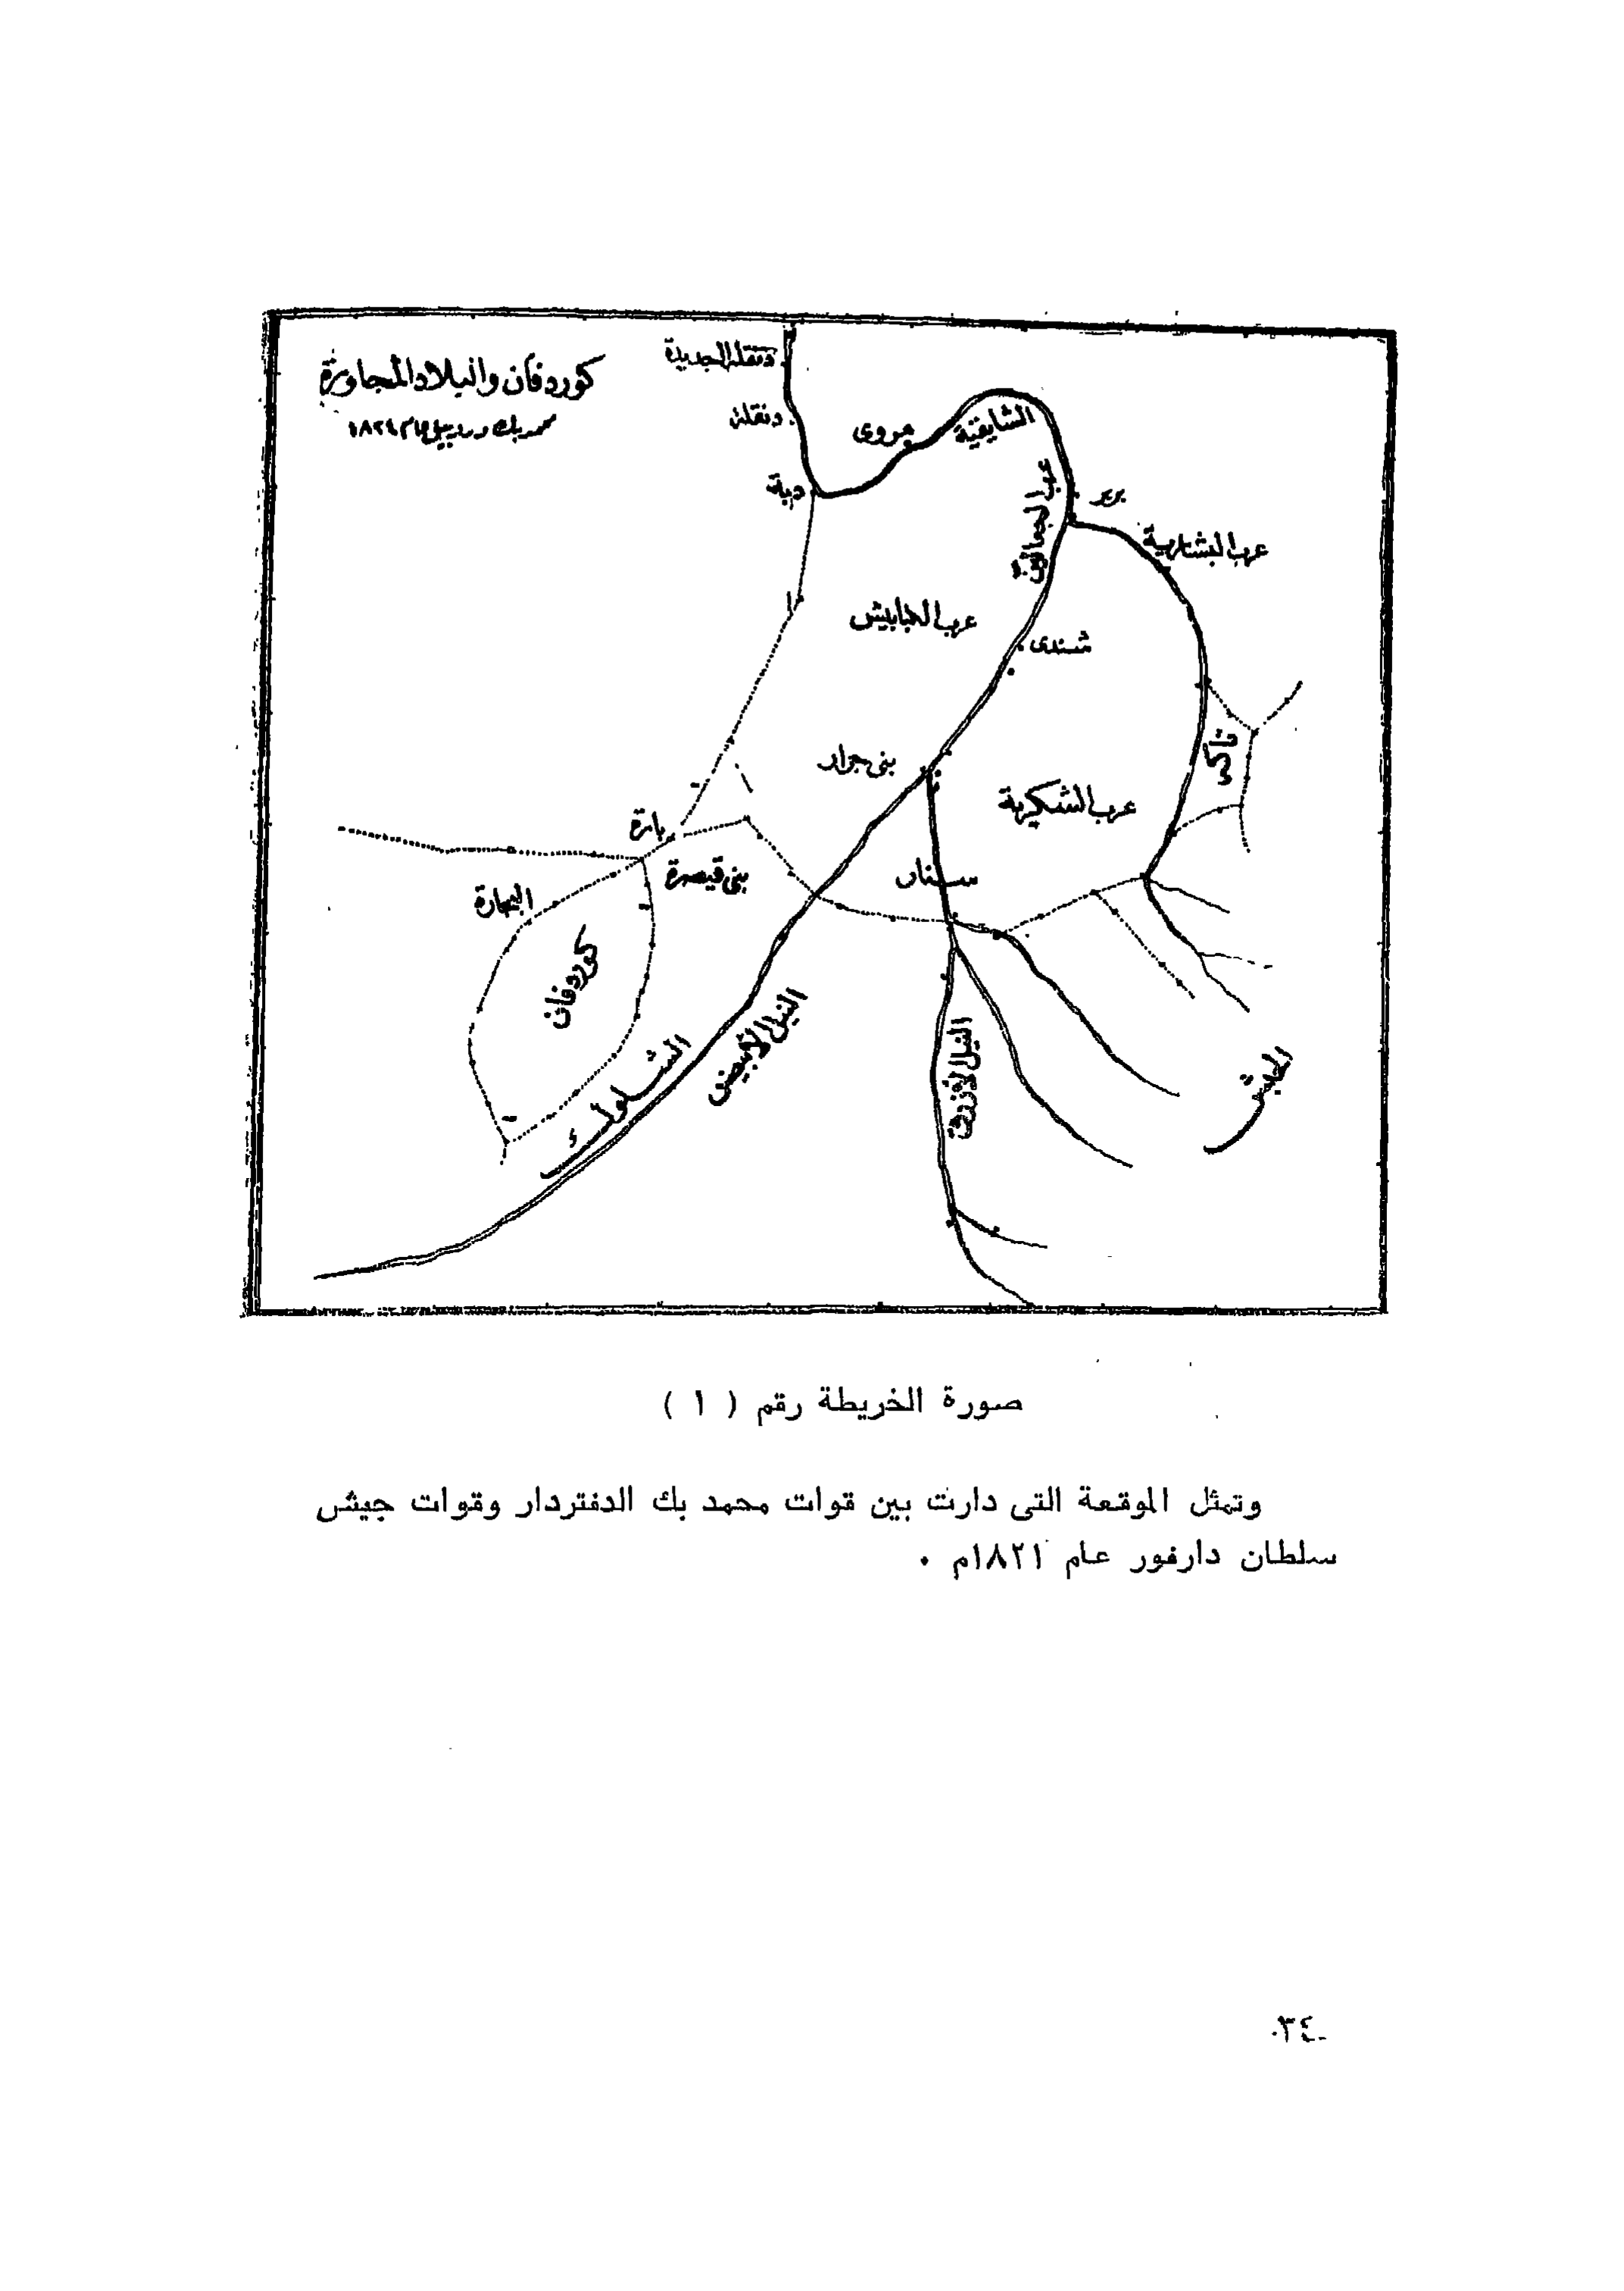 كوردفان والبلاد المجاورة
محمد بك
دنقلة الجديدة
دنقلة
دبة
مروى
الشايقية
عرب الجعاليين
بربر
عرب البشارية
عرب الكبابيش
شندى
تاكى
بنى جرار
عرب الشكرية
بارة
بنى قيصرة
سنار
البقارة
كوردفان
النيل الأبيض
الشلوك
النيل الأزرق
الحبش
صورة الخريطة رقم ( ١ )
وتمثل الموقعة التى دارت بين قوات محمد بك الدفتردار وقوات جيش
سلطان دارفور عام ١٨٢١م ٠
٣٤